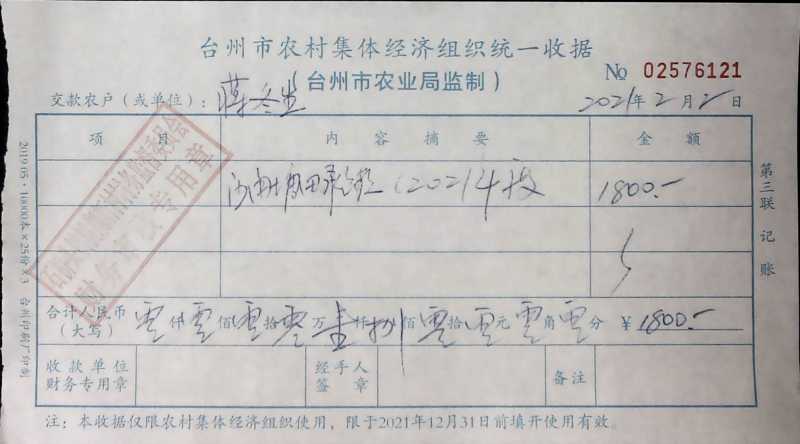 台州市农村集体经济组织统一收据
(台州市农业局监制)
№ 02576121
交款农户(或单位): 蒋冬生 2021年2月2日
项 目 内 容 摘 要 金 额
(2021年度 1800.-
合计人民币(大写) 零仟零佰零拾零万壹仟捌佰零拾零元零角零分 ¥1800.-
收款单位财务专用章 经手人签章 备注
注:本收据仅限农村集体经济组织使用,限于2021年12月31日前填开使用有效。
第三联 记账
2019.05·10000本×25份×3 台州印刷厂印制
财务审核专用章